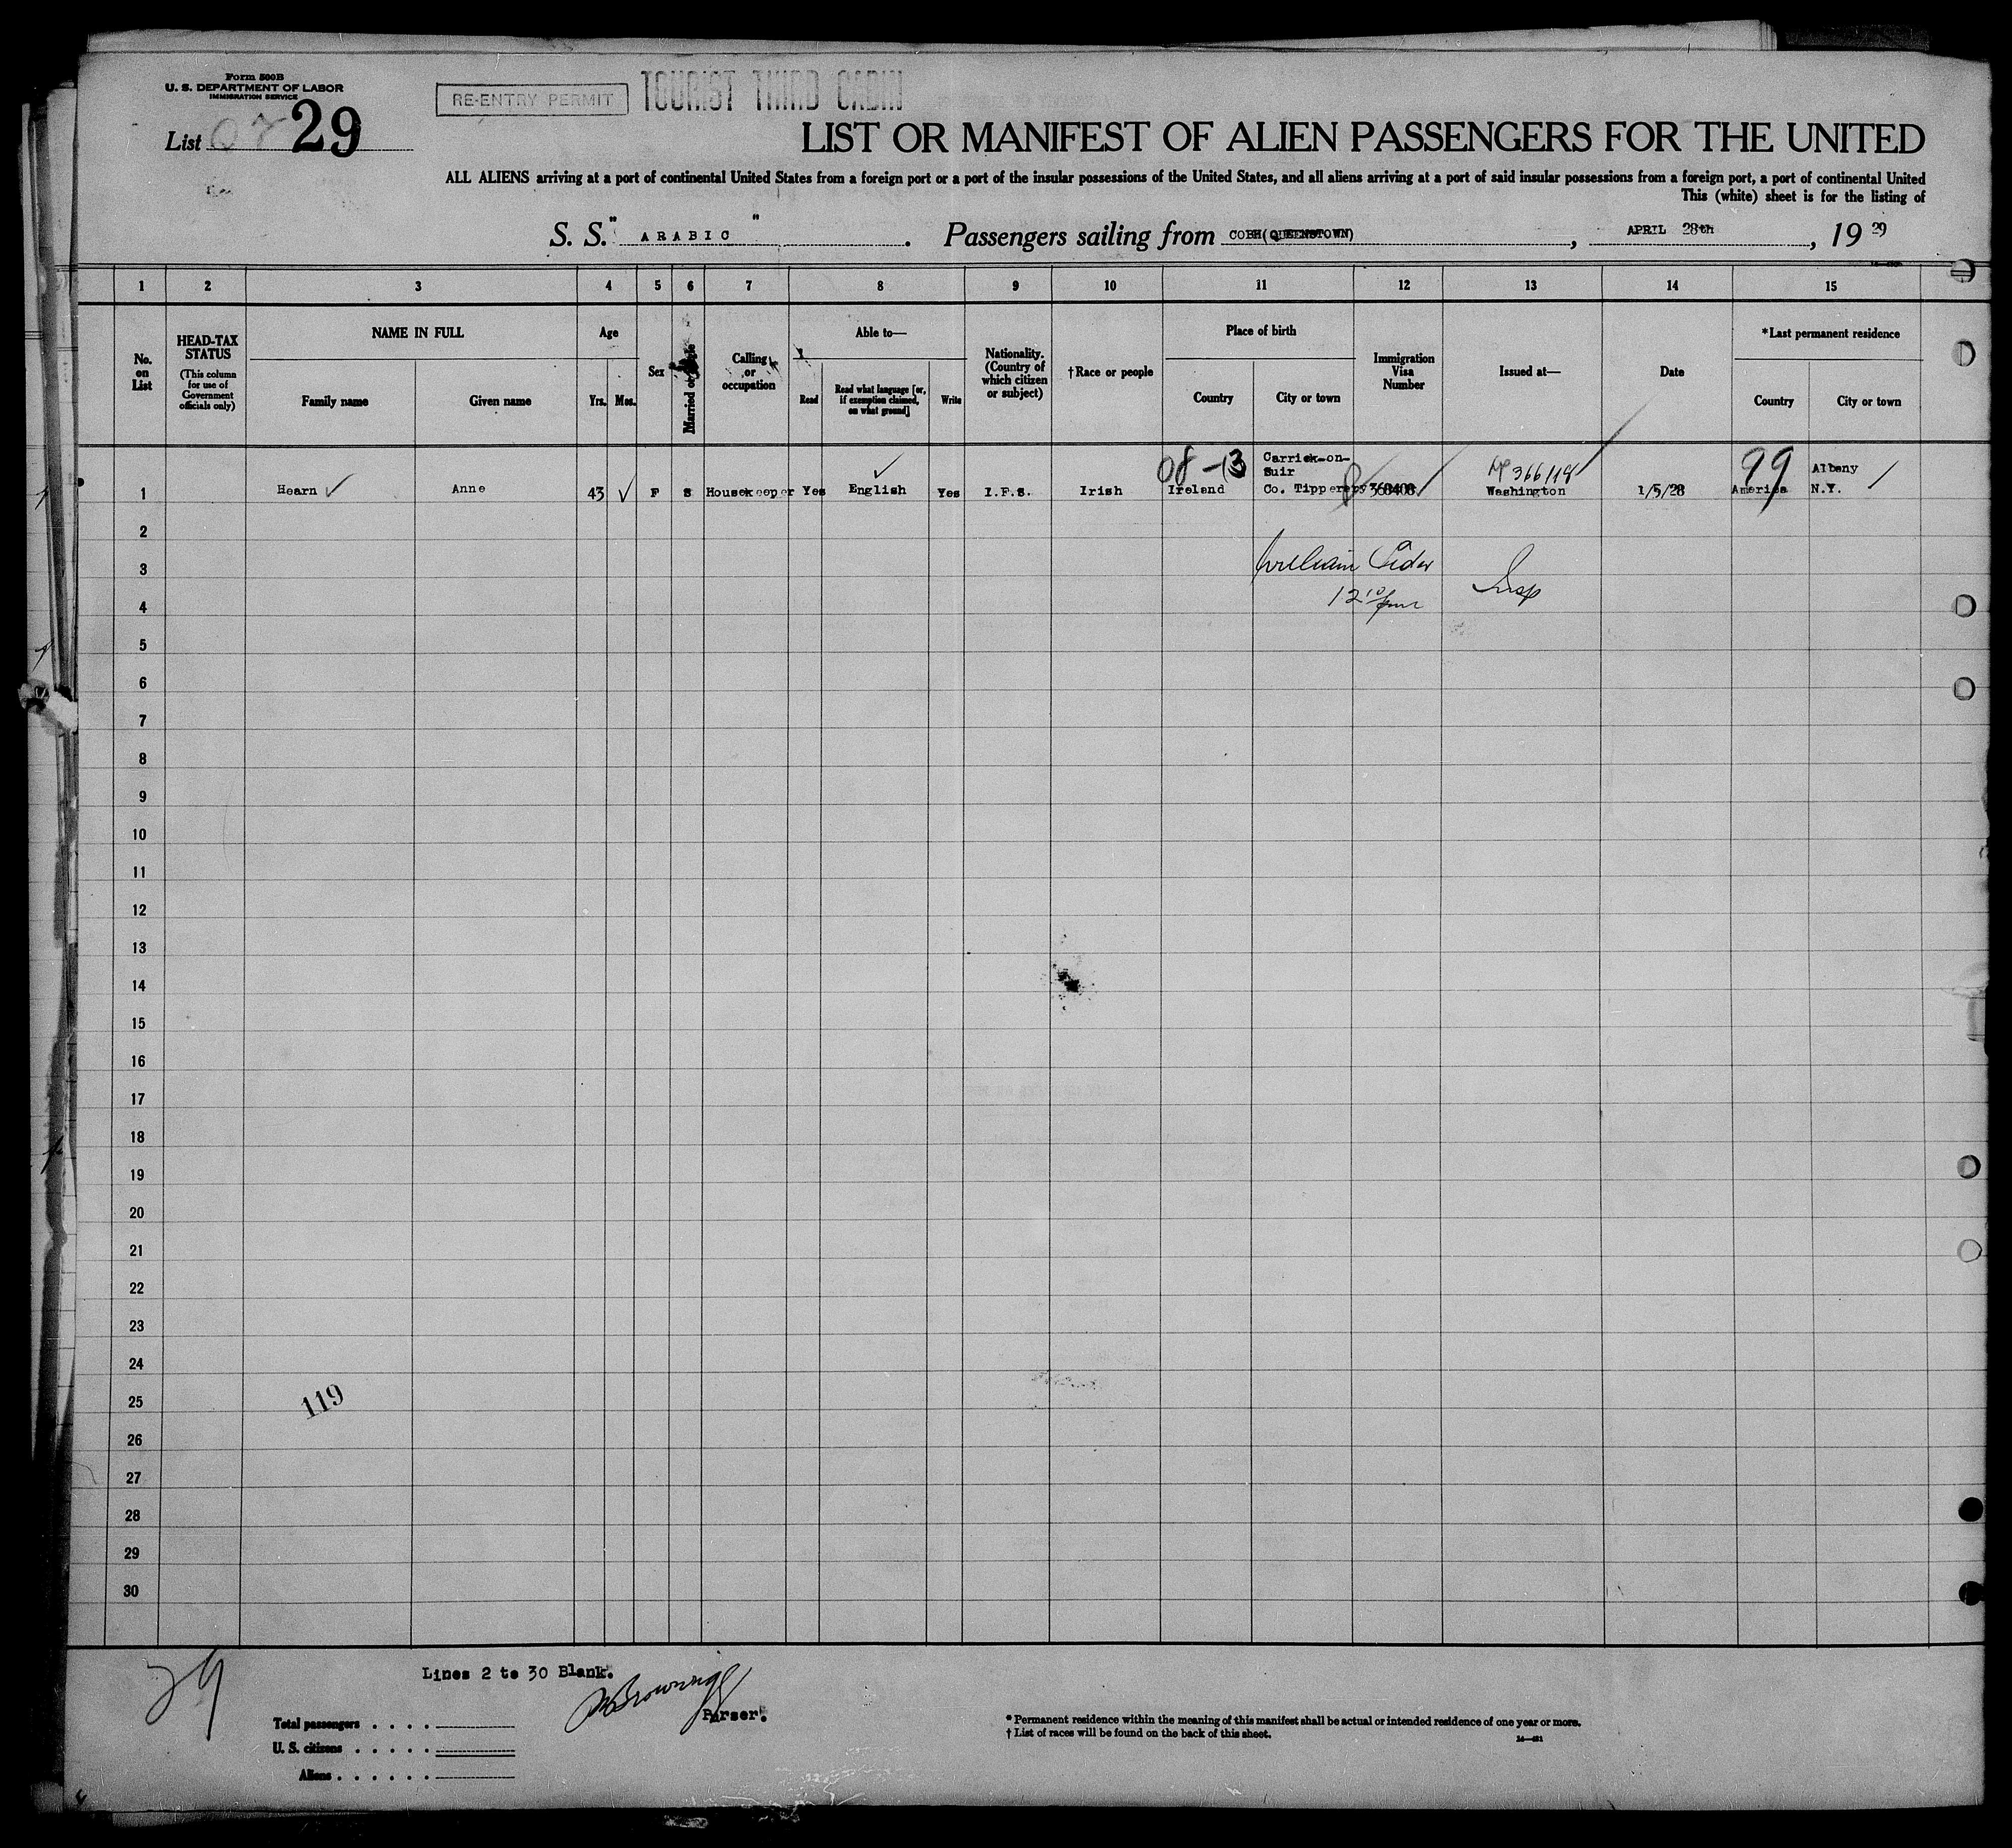 Form 500B
U. S. DEPARTMENT OF LABOR
IMMIGRATION SERVICE
List 29
RE-ENTRY PERMIT
TOURIST THIRD CABIN
LIST OR MANIFEST OF ALIEN PASSENGERS FOR THE UNITED
ALL ALIENS arriving at a port of continental United States from a foreign port or a port of the insular possessions of the United States, and all aliens arriving at a port of said insular possessions from a foreign port, a port of continental United
This (white) sheet is for the listing of
S. S. " ARABIC " . Passengers sailing from COBH(QUEENSTOWN) , APRIL 28th , 19 29
1 2 3 4 5 6 7 8 9 10 11 12 13 14 15
No. on List
HEAD-TAX STATUS
(This column for use of Government officials only)
NAME IN FULL
Family name
Given name
Age
Yrs. Mos.
Sex
Married or Single
Calling or occupation
Able to—
Read
Read what language [or, if exemption claimed, on what ground]
Write
Nationality. (Country of which citizen or subject)
†Race or people
Place of birth
Country
City or town
Immigration Visa Number
Issued at—
Date
*Last permanent residence
Country
City or town
08-13
99
366118
1 Hearn Anne 43 F S Housekeeper Yes English Yes I.F.S. Irish Ireland Carrick-on-Suir Co. Tipperary Washington 1/5/28 America Albany N.Y.
2
3
William Insp
12 10 pm
4
5
6
7
8
9
10
11
12
13
14
15
16
17
18
19
20
21
22
23
24
25
119
26
27
28
29
30
29
Lines 2 to 30 Blank.
Browning
Purser.
Total passengers
U. S. citizens
Aliens
* Permanent residence within the meaning of this manifest shall be actual or intended residence of one year or more.
† List of races will be found on the back of this sheet.